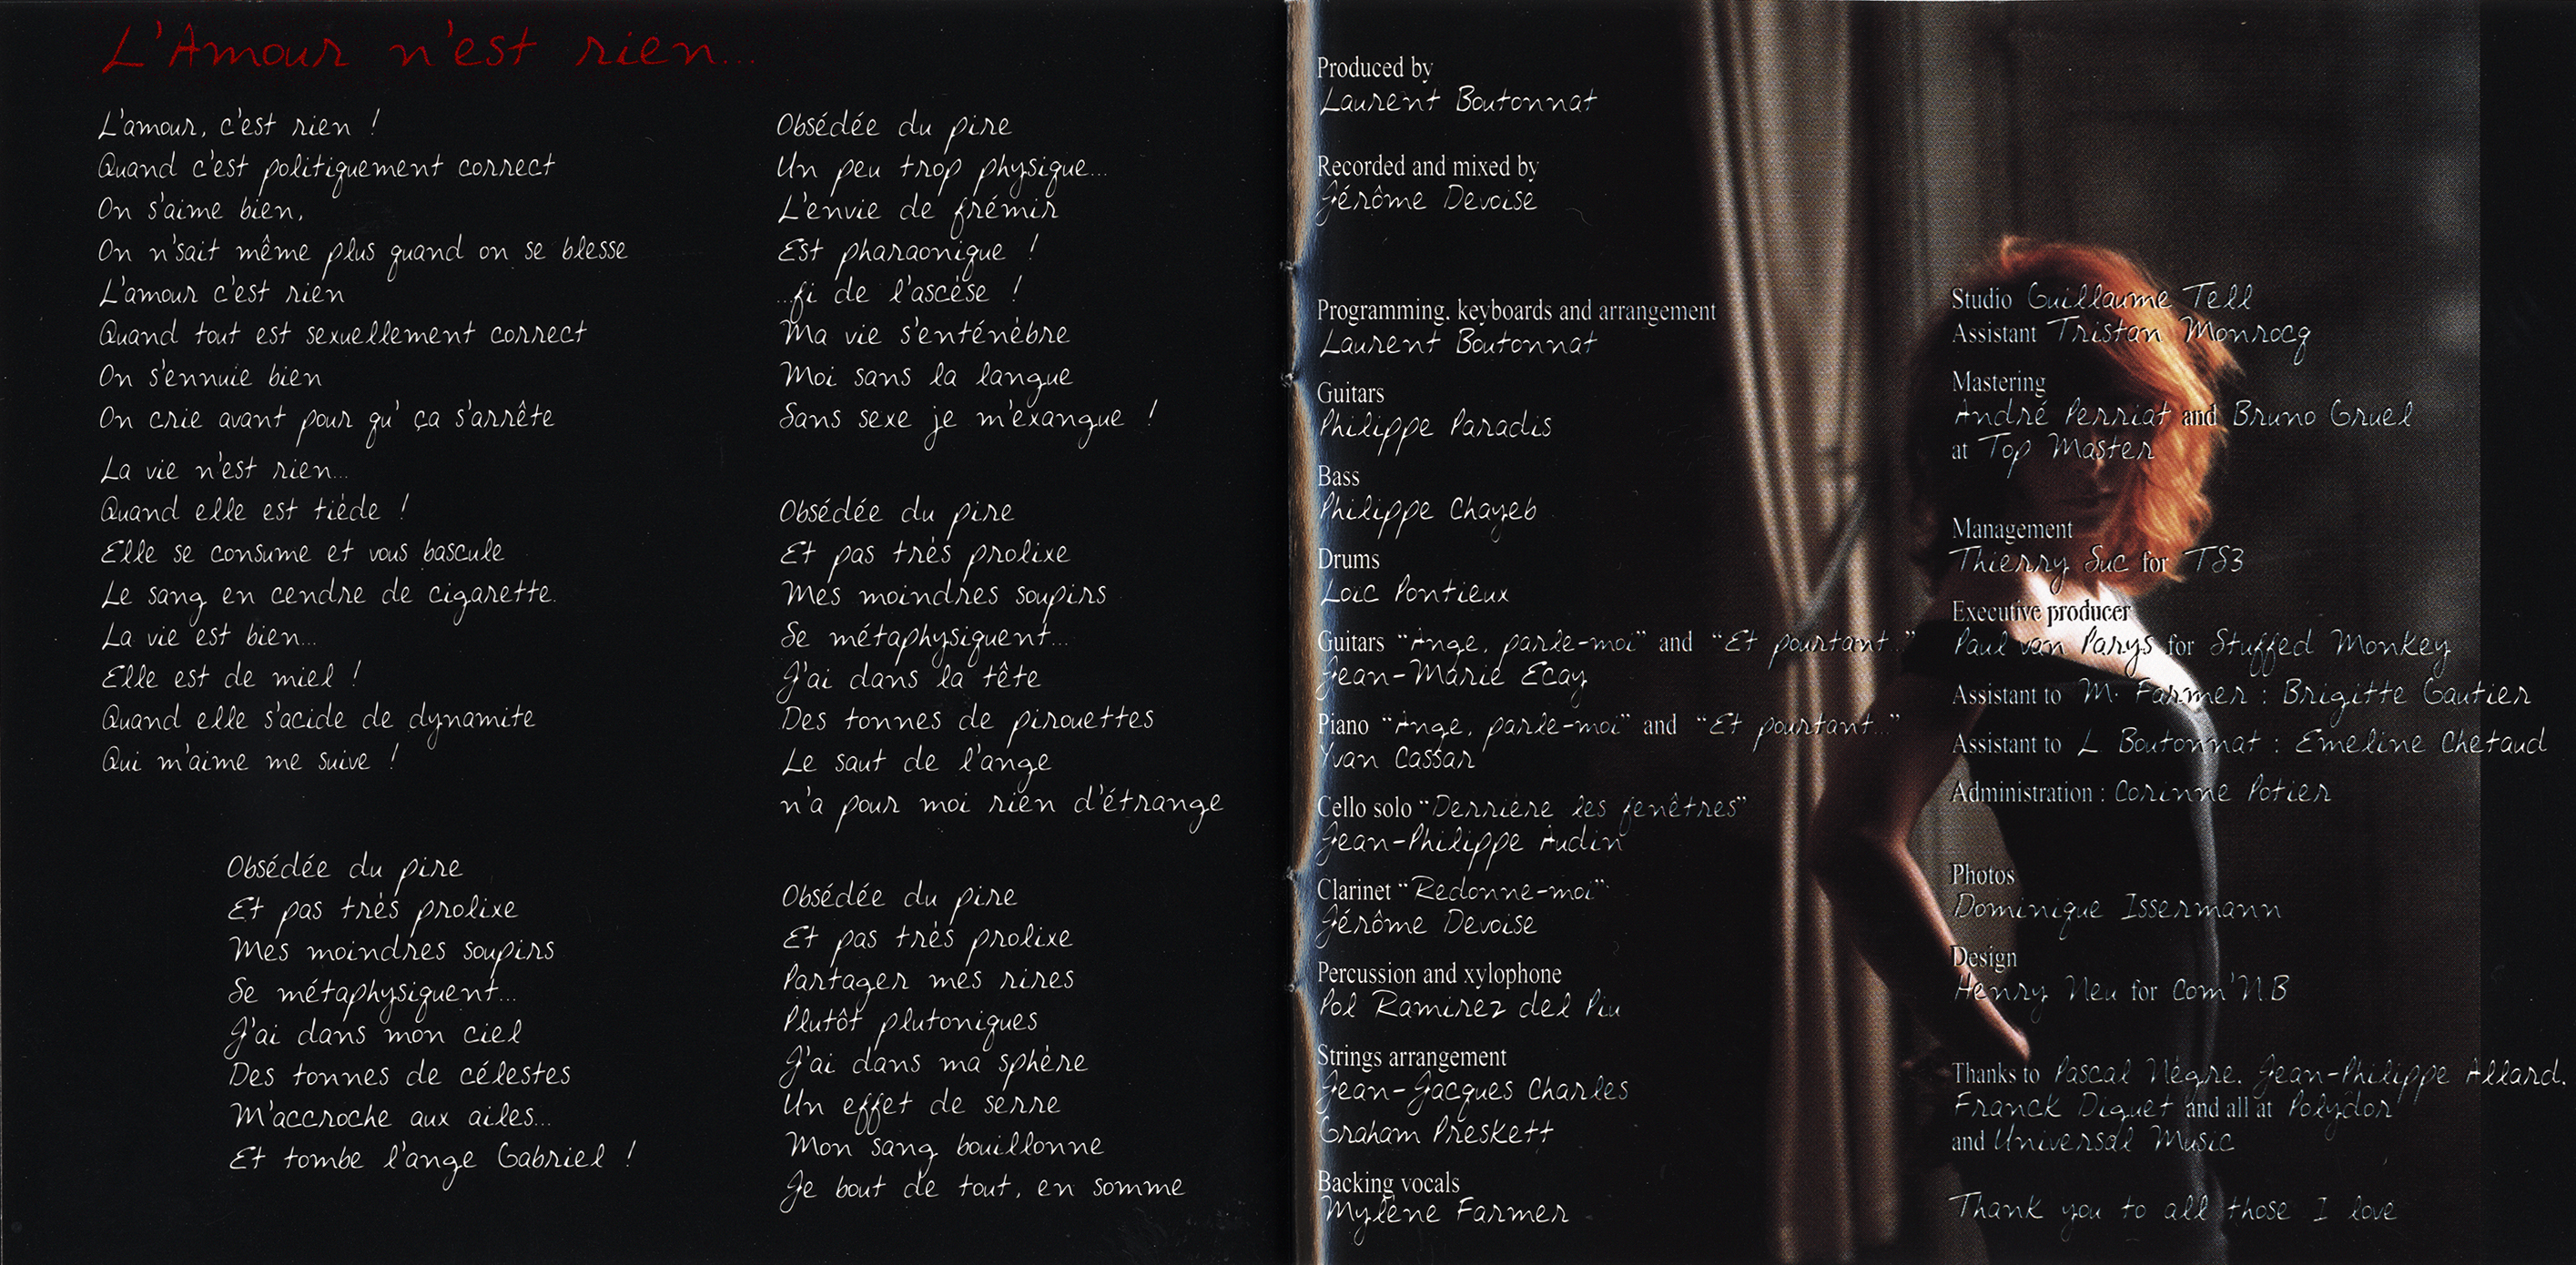 L'Amour n'est rien...
L'amour, c'est rien !
Quand c'est politiquement correct
On s'aime bien,
On n'sait même plus quand on se blesse
L'amour c'est rien
Quand tout est sexuellement correct
On s'ennuie bien
On crie avant pour qu' ça s'arrête
La vie n'est rien...
Quand elle est tiède !
Elle se consume et vous bascule
Le sang en cendre de cigarette.
La vie est bien...
Elle est de miel !
Quand elle s'acide de dynamite
Qui m'aime me suive !
Obsédée du pire
Et pas très prolixe
Mes moindres soupirs
Se métaphysiquent...
J'ai dans mon ciel
Des tonnes de célestes
M'accroche aux ailes...
Et tombe l'ange Gabriel !
Obsédée du pire
Un peu trop physique...
L'envie de frémir
Est pharaonique !
...fi de l'ascèse !
Ma vie s'enténèbre
Moi sans la langue
Sans sexe je m'exangue !
Obsédée du pire
Et pas très prolixe
Mes moindres soupirs
Se métaphysiquent...
J'ai dans la tête
Des tonnes de pirouettes
Le saut de l'ange
n'a pour moi rien d'étrange
Obsédée du pire
Et pas très prolixe
Partager mes rires
Plutôt plutoniques
J'ai dans ma sphère
Un effet de serre
Mon sang bouillonne
Je bout de tout, en somme
Produced by
Laurent Boutonnat
Recorded and mixed by
Jérôme Devoise
Programming, keyboards and arrangement
Laurent Boutonnat
Guitars
Philippe Paradis
Bass
Philippe Chayeb
Drums
Loïc Pontieux
Guitars "Ange, parle-moi" and "Et pourtant..."
Jean-Marie Ecay
Piano "Ange, parle-moi" and "Et pourtant..."
Yvan Cassar
Cello solo "Derrière les fenêtres"
Jean-Philippe Audin
Clarinet "Redonne-moi"
Jérôme Devoise
Percussion and xylophone
Pol Ramirez del Piu
Strings arrangement
Jean-Jacques Charles
Graham Preskett
Backing vocals
Mylène Farmer
Studio Guillaume Tell
Assistant Tristan Monrocq
Mastering
André Perriat and Bruno Gruel
at Top Master
Management
Thierry Suc for TS3
Executive producer
Paul van Parys for Stuffed Monkey
Assistant to M. Farmer : Brigitte Gautier
Assistant to L. Boutonnat : Emeline Chetaud
Administration : Corinne Potier
Photos
Dominique Issermann
Design
Henry Neu for Com'N.B
Thanks to Pascal Nègre, Jean-Philippe Allard,
Franck Diguet and all at Polydor
and Universal Music
Thank you to all those I love